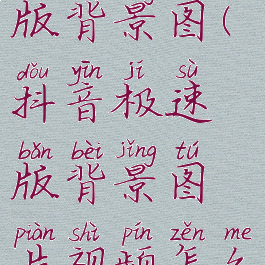 版背景图(
dǒu yīn jí sù
抖音极速
bǎn bèi jǐng tú
版背景图
piàn shì pín zěn me
片视频怎么